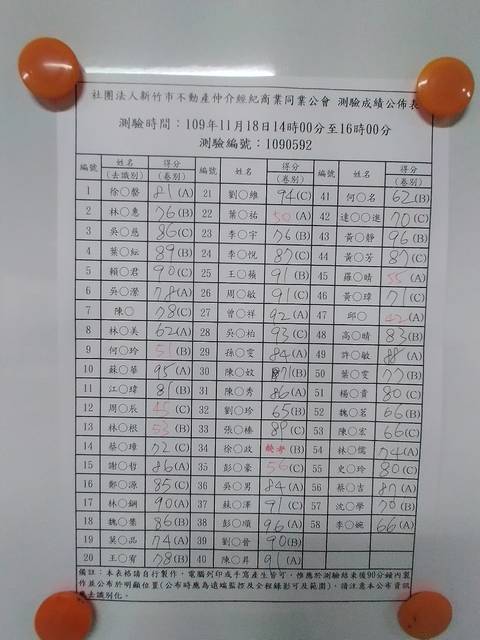 社團法人新竹市不動產仲介經紀商業同業公會 測驗成績公佈表
測驗時間：109年11月18日14時00分至16時00分
測驗編號：1090592
編號 姓名(去識別) 得分(卷別) 編號 姓名 得分(卷別) 編號 姓名 得分(卷別)
1 徐○馨 81(A) 21 劉○維 94(C) 41 何○名 62(B)
2 林○惠 76(B) 22 葉○祐 50(A) 42 達○○進 70(C)
3 吳○慈 86(C) 23 李○宇 76(B) 43 黃○靜 96(B)
4 葉○紜 89(B) 24 李○悅 87(C) 44 黃○芳 87(C)
5 賴○君 90(C) 25 王○蘋 91(B) 45 羅○晴 55(A)
6 吳○潔 78(A) 26 周○敏 91(C) 46 黃○瑋 71(C)
7 陳○ 78(C) 27 曾○祥 92(A) 47 邱○ 42(A)
8 林○美 62(A) 28 吳○柏 93(C) 48 高○晴 83(B)
9 何○玲 51(B) 29 孫○雯 84(A) 49 許○敏 88(A)
10 蘇○華 95(A) 30 陳○妏 71(B) 50 葉○雯 77(B)
11 江○瑋 81(B) 31 陳○秀 86(A) 51 楊○貴 80(C)
12 周○辰 (C) 32 劉○珍 65(B) 52 魏○茗 66(B)
13 林○根 53(B) 33 張○榛 89(C) 53 陳○宏 66(C)
14 蔡○璋 72(C) 34 徐○政 缺考(B) 54 林○儒 74(A)
15 謝○哲 86(A) 35 彭○豪 56(C) 55 史○玲 80(C)
16 鄭○源 85(C) 36 吳○男 84(A) 56 蔡○吉 87(A)
17 林○鋼 90(A) 37 蘇○澤 91(C) 57 沈○學 70(B)
18 魏○集 86(B) 38 彭○順 96(A) 58 李○婉 66(A)
19 莫○品 74(A) 39 劉○晉 90(B)
20 王○宥 78(B) 40 陳○昇 91(A)
備註：本表格請自行製作，電腦列印或手寫產生皆可，惟應於測驗結束後90分鐘內製
作並公布於明顯位置(公布時應為遠端監控及全程錄影可及範圍)，請注意本公布資訊
應去識別化。